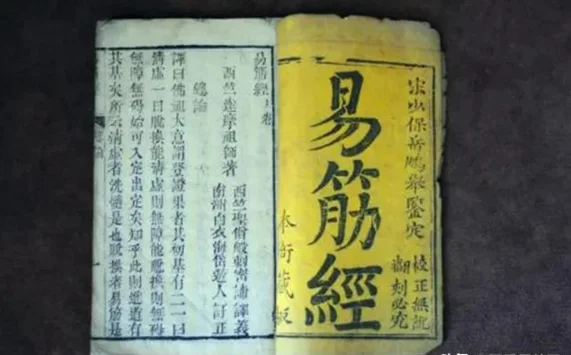 宋少保岳鵬舉鑒定
校正無訛
翻刻必究
易筋經
本衙藏板
易筋經 卷
西竺達摩祖師著
西竺聖僧般剌密諦譯義
南洲白衣 遊人訂正
總論
譯曰佛祖大意謂登證果者其初基有二一曰
清虛一曰脫換能清虛則無障能脫換則無碍
無障無碍始可入定出定矣知乎此則進道有
其基矣所云清虛者洗髓是也脫換者易筋是